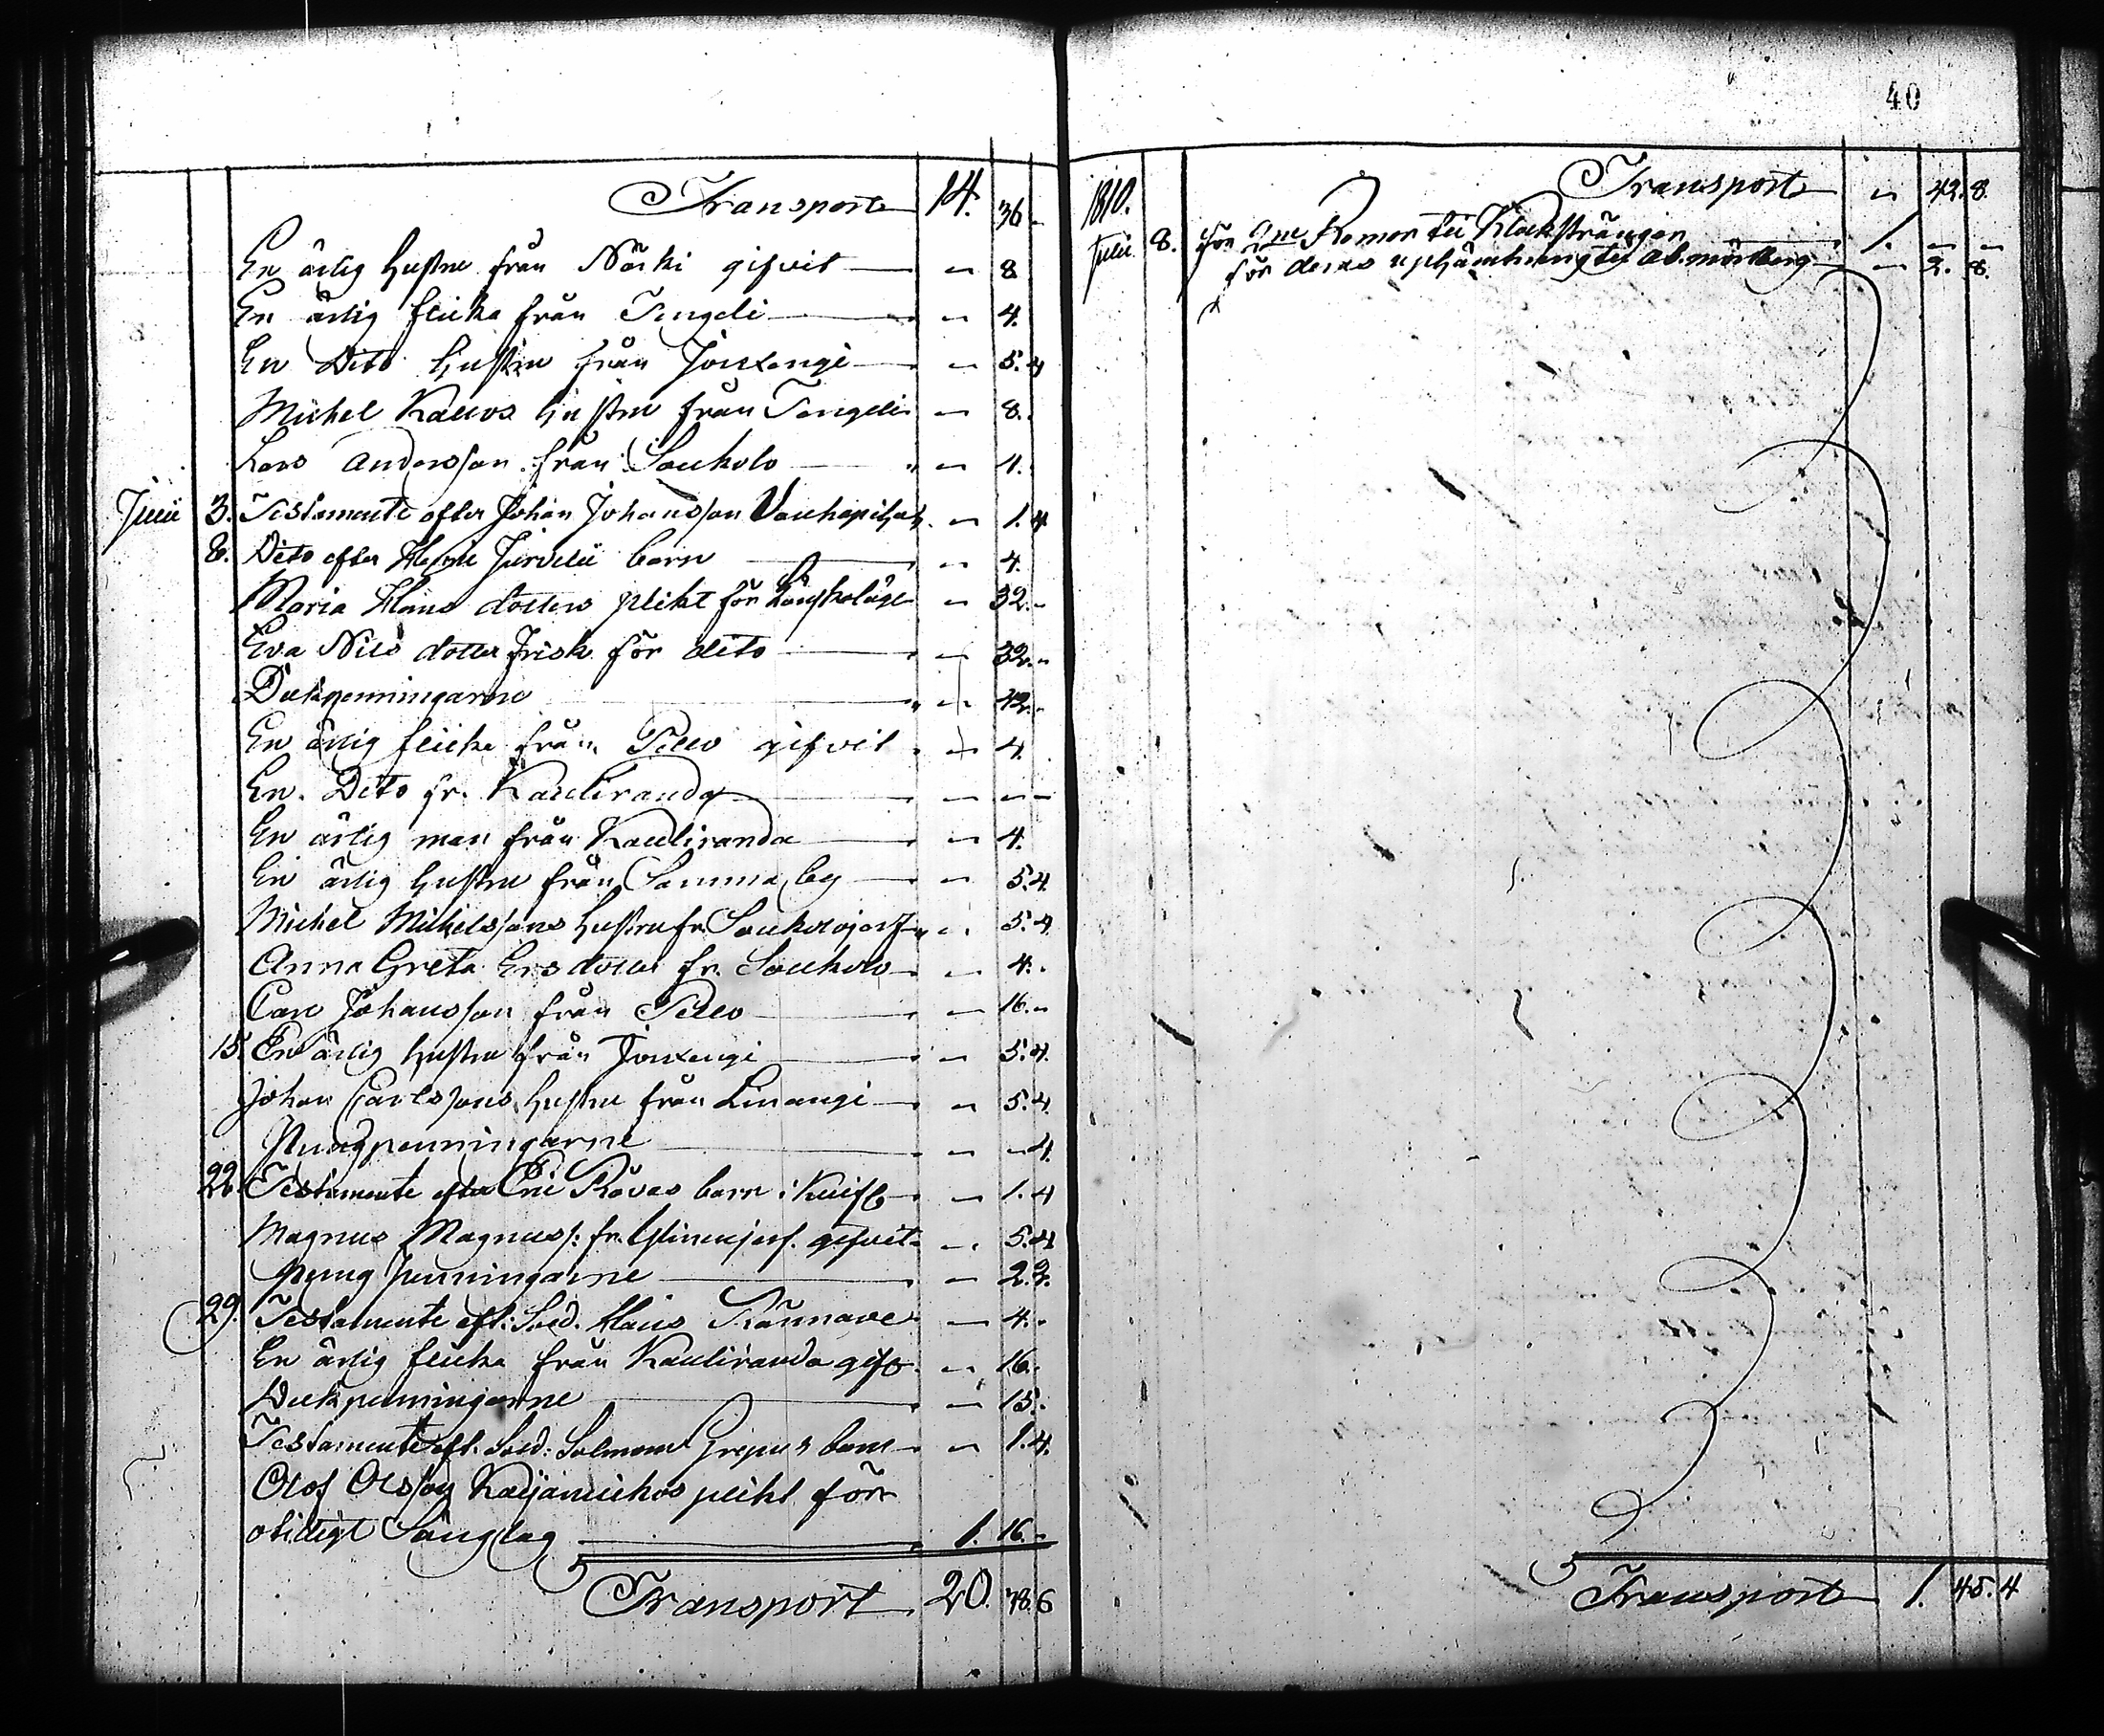 Transport 14. 36 -
En ärlig hustru från Närki gifvit — 8
En ärlig flicka från Tengeli — 4.
En Dito hustru från Jouxengi — 5. 4
Michel Kallos hustru från Tengeli — 8.
Lars Andersson från Soukolo — 4.
Julii 3. Testamente efter Johan Johansson — 1. 4
8. Dito efter Jurvelii barn — 4.
Maria Hans dotters plikt för — 32. -
Eva Nils dotter Frisk för dito — 32. -
Deckpenningarne — 42. -
En ärlig flicka från Pello gifvit — 4.
En Dito fr. Kauliranda — — —
En ärlig man från Kauliranda — 4.
En ärlig hustru från Samma by — 5. 4.
Michel Michelssons hustru fr. Soukolojerf — 5. 4
Anna Greta Ersdotter fr. Soukolo — 4. -
Carl Johansson från Pello — 16. -
15. En ärlig hustru från Jouxengi — 5. 4.
Johan Carlssons hustru från Linangi — 5. 4
Pungpenningarne — - 4.
22. Testamente efter Eric Råvas barn i — 1. 4
Magnus Magnuss: fr. gifvit — 5. 4
Pungpenningarne — 2. 2.
29. Testamente eft: Sold. Hans — 4. -
En ärlig flicka från Kauliranda gifv. — 16. -
Deckpenningarne — 15. -
Testamente eft. Sold: Salmom Grepus barn — 1. 4.
Olof Olsson plikt för
otidigt Sänglag 1. 16. -
Transport 20. 48. 6
40
Transport — 42. 8.
1810.
Julii 8. för 2ne Remar till Klocksträngar 1. — —
för deras till Ab. mörtberg — 2. 8.
Transport 1. 45. 4